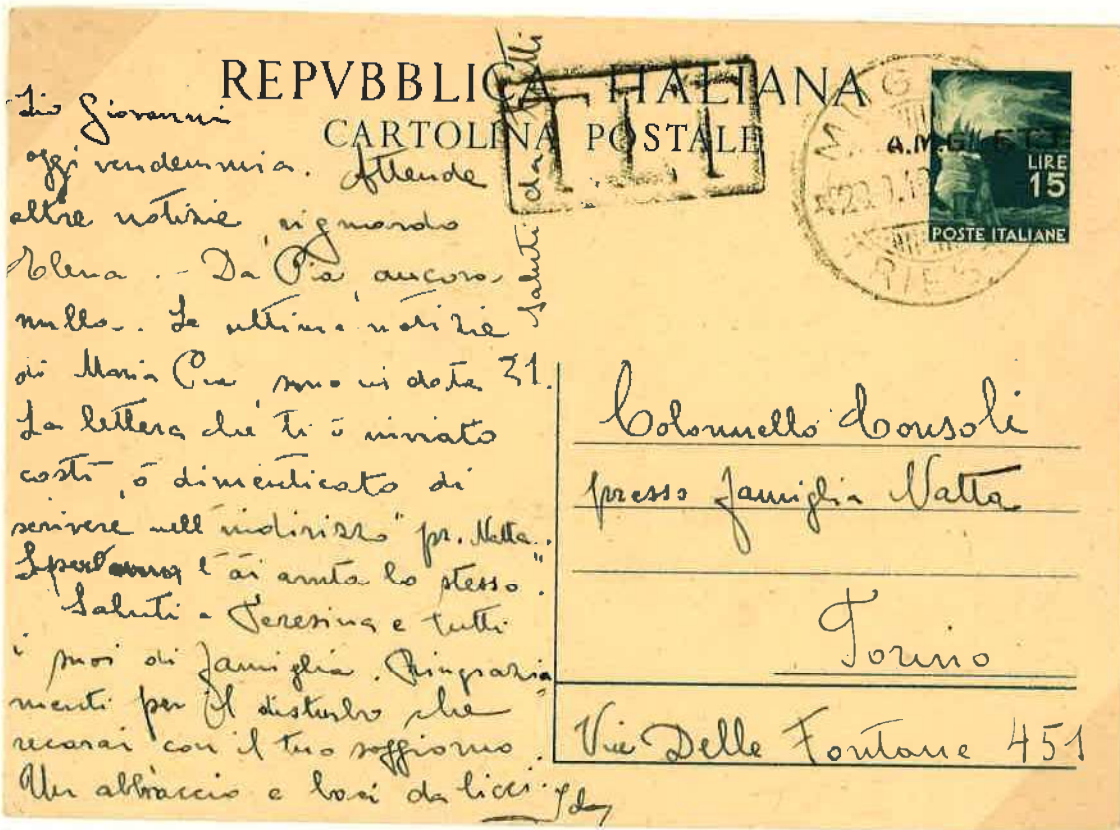 REPVBBLICA ITALIANA
CARTOLINA POSTALE
TLT
MUGGIA
TRIES
A.M.G. F.T.T.
LIRE
15
POSTE ITALIANE
Zio Giovanni
oggi vendemmia. Attende
altre notizie, riguardo
Elena. - Da Pia ancora
nulla. Le ultime notizie
di Maria Pia sono in data 31.
La lettera che ti ò inviato
costì, ò dimenticato di
scrivere nell'indirizzo "pr. Natta".
l'ài avuta lo stesso.
Saluti a Teresina e tutti
i suoi di famiglia. Ringrazia
menti per il disturbo che
recarai con il tuo soggiorno.
Un abbraccio e baci da
Saluti da tutti
Colonnello Consoli
presso famiglia Natta
Torino
Via Delle Fontane 451